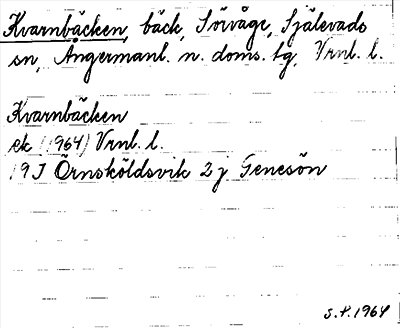 Kvarnbäcken, bäck, Sörvåge, Själevads
sn, Ångermanl. n. doms. tg, Vrnl. l.
Kvarnbäcken
ek (1964) Vrnl. l.
19J Örnsköldsvik 2j Genesön
S.F. 1964